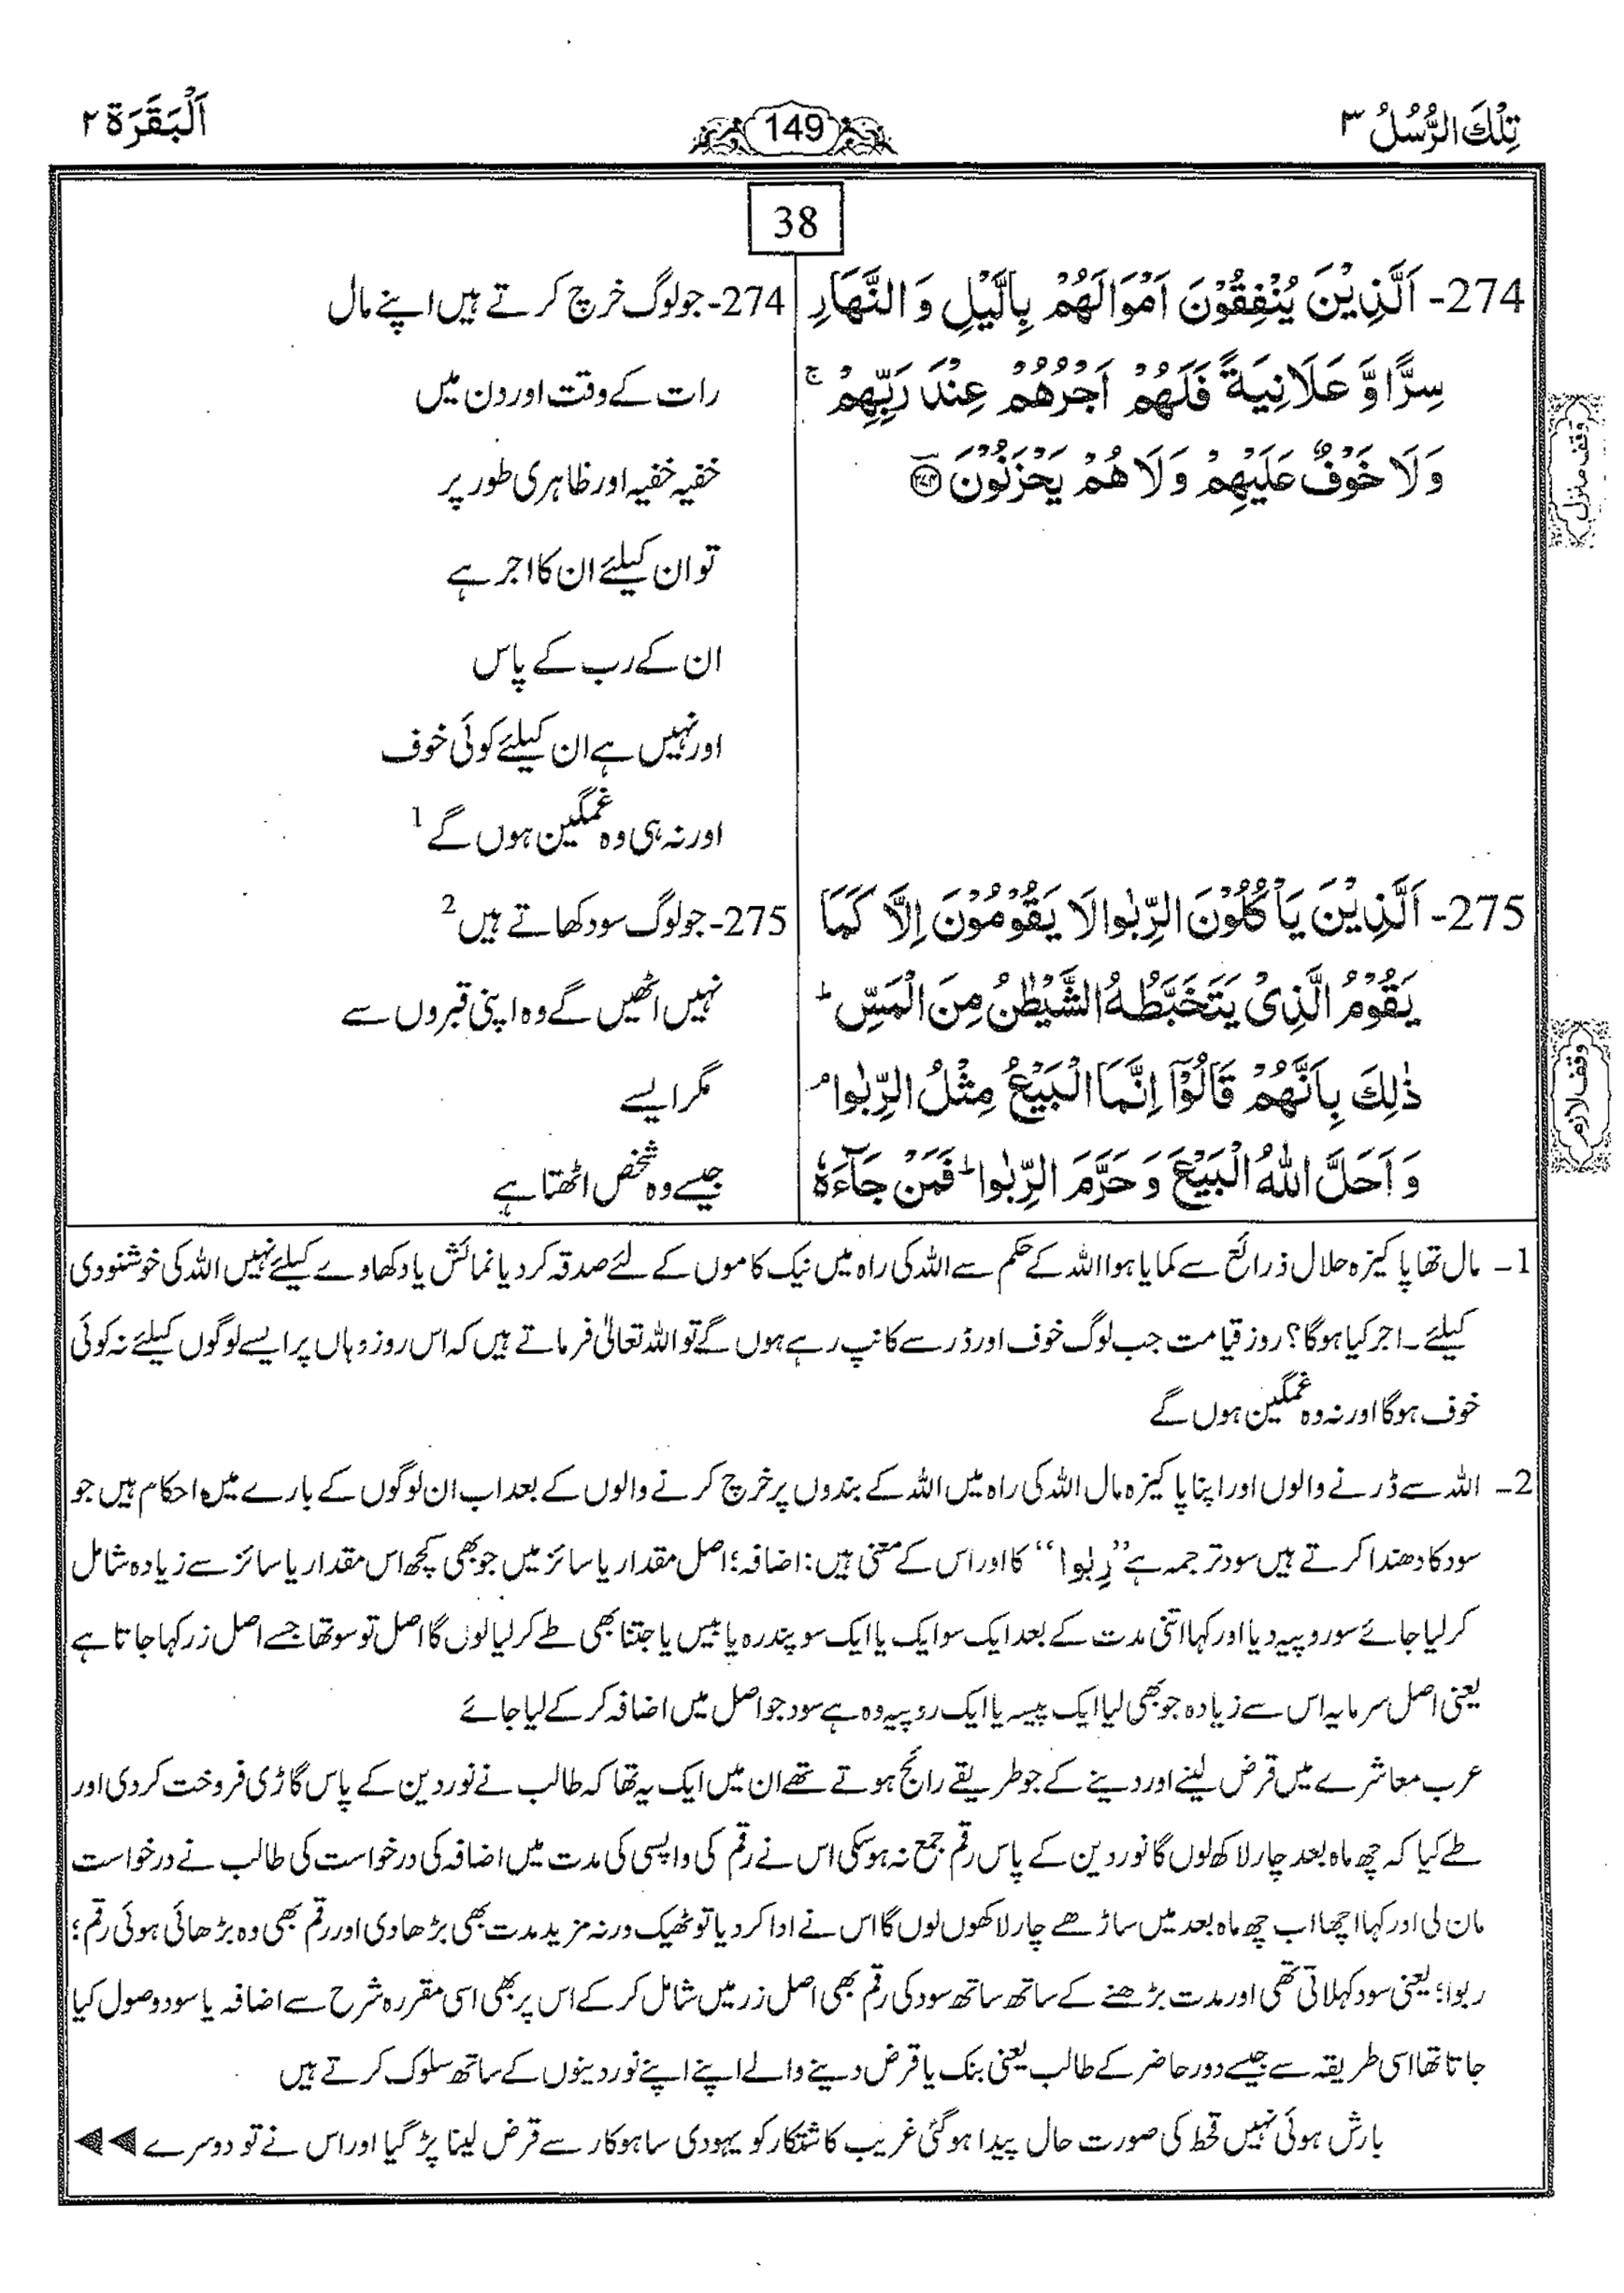 تِلْكَ الرُّسُلُ ٣
149
اَلْبَقَرَة ٢
38
274- اَلَّذِيْنَ يُنْفِقُوْنَ اَمْوَالَهُمْ بِالَّيْلِ وَ النَّهَارِ
سِرًّا وَّ عَلَانِيَةً فَلَهُمْ اَجْرُهُمْ عِنْدَ رَبِّهِمْ ۚ
وَ لَا خَوْفٌ عَلَيْهِمْ وَ لَا هُمْ يَحْزَنُوْنَ ﴿۲۷۴﴾
وقف منزل
275- اَلَّذِيْنَ يَاْكُلُوْنَ الرِّبٰوا لَا يَقُوْمُوْنَ اِلَّا كَمَا
يَقُوْمُ الَّذِىْ يَتَخَبَّطُهُ الشَّيْطٰنُ مِنَ الْمَسِّ ؕ
ذٰلِكَ بِاَنَّهُمْ قَالُوْۤا اِنَّمَا الْبَيْعُ مِثْلُ الرِّبٰوا ۘ
وَ اَحَلَّ اللّٰهُ الْبَيْعَ وَ حَرَّمَ الرِّبٰوا ؕ فَمَنْ جَآءَهٗ
وقف لازم
274- جو لوگ خرچ کرتے ہیں اپنے مال
رات کے وقت اور دن میں
خفیہ خفیہ اور ظاہری طور پر
تو ان کیلئے ان کا اجر ہے
ان کے رب کے پاس
اور نہیں ہے ان کیلئے کوئی خوف
اور نہ ہی وہ غمگین ہوں گے 1
275- جو لوگ سود کھاتے ہیں 2
نہیں اٹھیں گے وہ اپنی قبروں سے
مگر ایسے
جیسے وہ شخص اٹھتا ہے
1۔ مال تھا پاکیزہ حلال ذرائع سے کمایا ہوا اللہ کے حکم سے اللہ کی راہ میں نیک کاموں کے لئے صدقہ کر دیا نمائش یا دکھاوے کیلئے نہیں اللہ کی خوشنودی
کیلئے۔ اجر کیا ہوگا؟ روز قیامت جب لوگ خوف اور ڈر سے کانپ رہے ہوں گے تو اللہ تعالیٰ فرماتے ہیں کہ اس روز وہاں پر ایسے لوگوں کیلئے نہ کوئی
خوف ہوگا اور نہ وہ غمگین ہوں گے
2۔ اللہ سے ڈرنے والوں اور اپنا پاکیزہ مال اللہ کی راہ میں اللہ کے بندوں پر خرچ کرنے والوں کے بعد اب ان لوگوں کے بارے میں احکام ہیں جو
سود کا دھندا کرتے ہیں سود ترجمہ ہے ’’رِبٰوا‘‘ کا اور اس کے معنی ہیں: اضافہ؛ اصل مقدار یا سائز میں جو بھی کچھ اس مقدار یا سائز سے زیادہ شامل
کر لیا جائے سو روپیہ دیا اور کہا اتنی مدت کے بعد ایک سو ایک یا ایک سو پندرہ یا بیس یا جتنا بھی طے کر لیا لوں گا اصل تو سو تھا جسے اصل زر کہا جاتا ہے
یعنی اصل سرمایہ اس سے زیادہ جو بھی لیا ایک پیسہ یا ایک روپیہ وہ ہے سود جو اصل میں اضافہ کر کے لیا جائے
عرب معاشرے میں قرض لینے اور دینے کے جو طریقے رائج ہوتے تھے ان میں ایک یہ تھا کہ طالب نے نور دین کے پاس گاڑی فروخت کر دی اور
طے کیا کہ چھ ماہ بعد چار لاکھ لوں گا نور دین کے پاس رقم جمع نہ ہو سکی اس نے رقم کی واپسی کی مدت میں اضافہ کی درخواست کی طالب نے درخواست
مان لی اور کہا اچھا اب چھ ماہ بعد میں ساڑھے چار لاکھوں لوں گا اس نے ادا کر دیا تو ٹھیک ورنہ مزید مدت بھی بڑھا دی اور رقم بھی وہ بڑھائی ہوئی رقم؛
ربوا؛ یعنی سود کہلاتی تھی اور مدت بڑھنے کے ساتھ ساتھ سود کی رقم بھی اصل زر میں شامل کر کے اس پر بھی اسی مقررہ شرح سے اضافہ یا سود وصول کیا
جاتا تھا اسی طریقہ سے جیسے دور حاضر کے طالب یعنی بنک یا قرض دینے والے اپنے اپنے نور دینوں کے ساتھ سلوک کرتے ہیں
بارش ہوئی نہیں قحط کی صورت حال پیدا ہو گئی غریب کاشتکار کو یہودی ساہوکار سے قرض لینا پڑ گیا اور اس نے تو دوسرے ◄◄